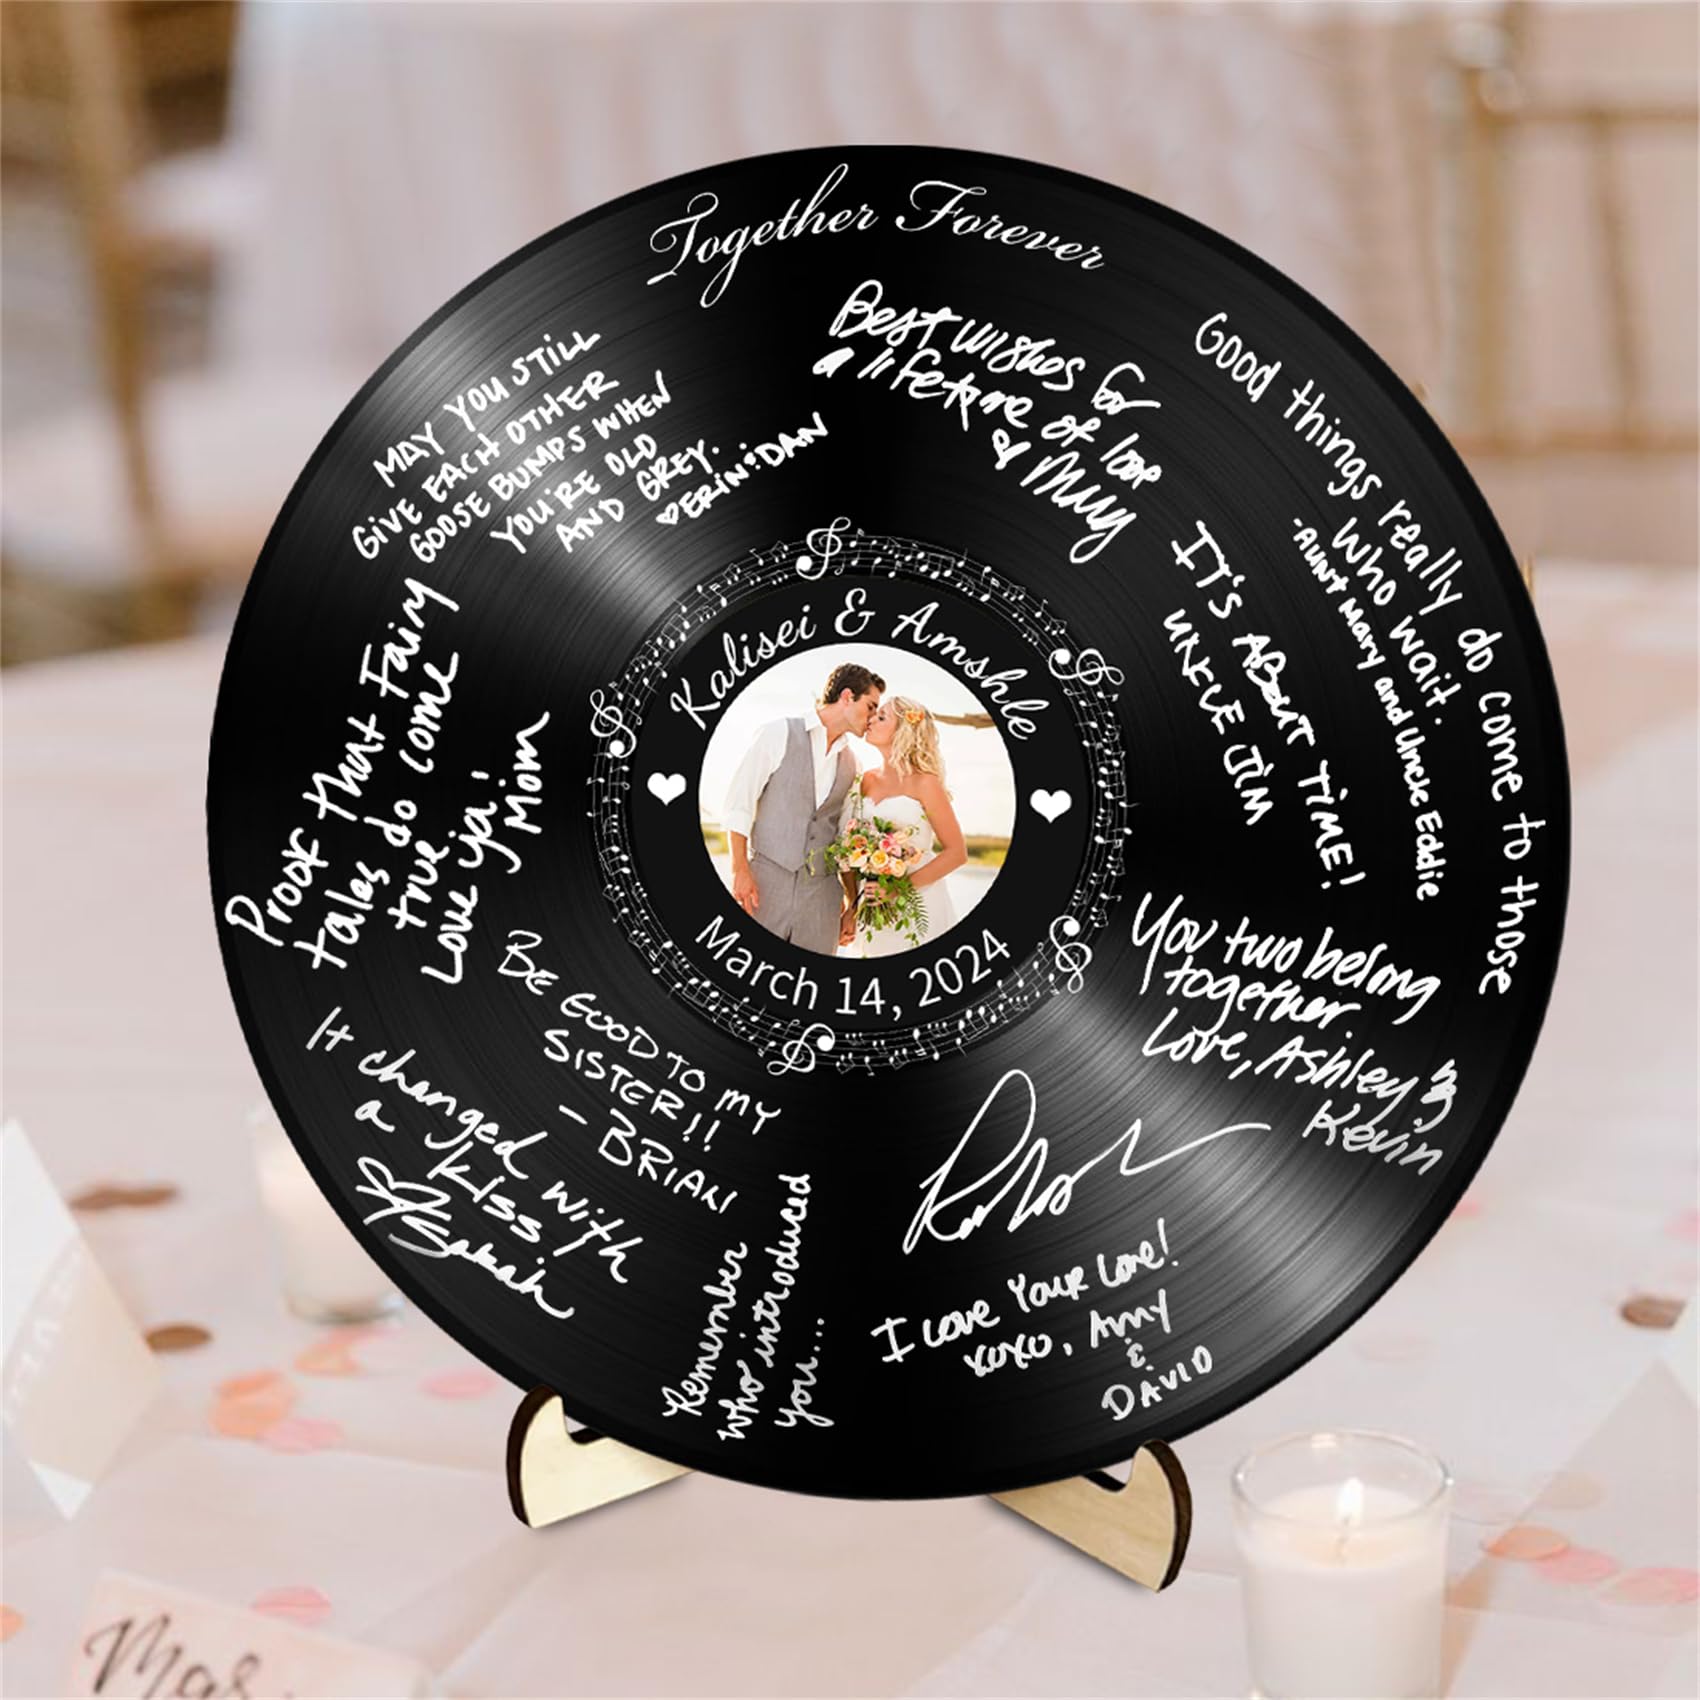 Together Forever
MAY YOU STILL
GIVE EACH OTHER
GOOSE BUMPS WHEN
YOU'RE OLD
AND GREY.
♡ERIN & DAN
Best wishes for
a lifetime of love
Good things really do come to those
who wait.
-AUNT Mary and Uncle Eddie
IT'S ABOUT TIME!
UNKLE JIM
Proof that Fairy
tales do come
true
Love ya!
Mom
Kalisei & Amshle
March 14, 2024
You two belong
together.
Love, Ashley &
Kevin
BE GOOD TO MY
SISTER!!
- BRIAN
It changed with
a kiss
Sarah
Remember
who introduced
you...
I Love Your Love!
xoxo, Amy
&
DAVID